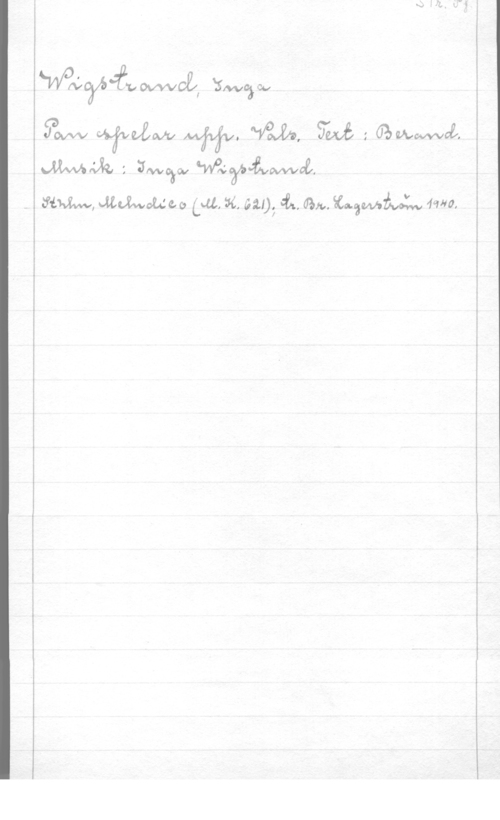 Wigstrand, Inga
Pan spelar upp. Vals. Text : Berand.
Musik : Inga Wigstrand.
Sthlm, (M. K. 621); tr. Br. Lagerström 1940.